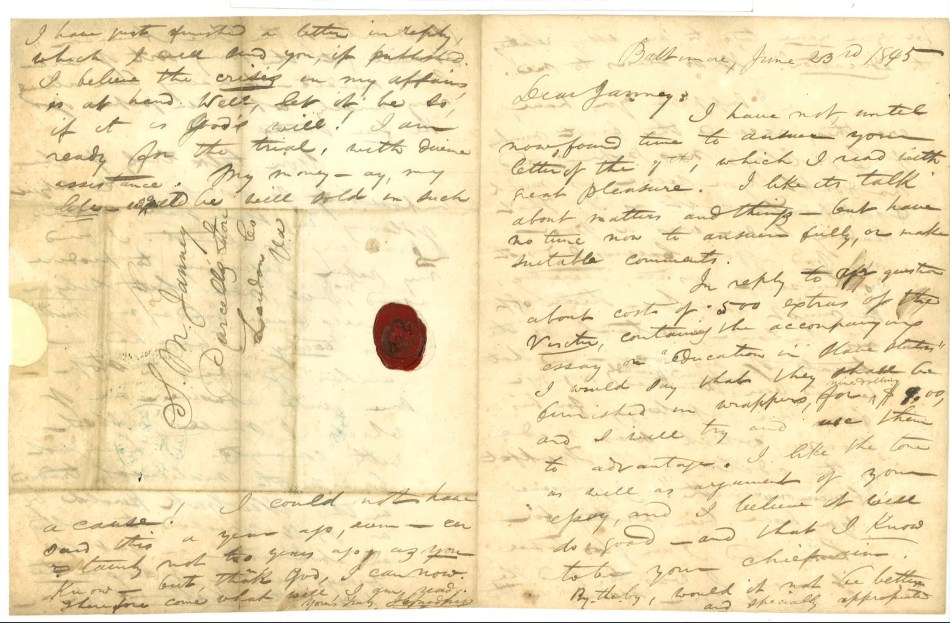 Baltimore, June 23rd 1845
Dear Janney:
I have not until
now, found time to answer your
letter of the 9th, which I read with
great pleasure. I like its talk
about matters and things – but have
no time now to answer fully, or make
suitable comments.
In reply to yr question
about costs of 500 extras of the
Visiter, containing the accompanying
essay on "education in Slave States"
I would say that they shall be
furnished in wrappers, for $9.00,
and I will try and use them
to advantage. I like the tone
as well as argument of your
essay, and I believe it will
do good – and that I know
to be your chief aim.
By-the-by, would it not be better
and specially appropriate
I have just finished a letter in reply,
which I will send you, if published.
I believe the crisis in my affairs
is at hand. Well, let it be so,
if it is God's will! I am
ready for the trial, with divine
assistance. My money – ay, my
life – would be well sold in such
S. M. Janney
Purcells Store
Loudon Co
Va
a cause! I could not have
said this a year ago, even – cer
tainly not two years ago, as you
know – but, thank God, I can now.
Therefore come what will, I am ready.
Yours truly